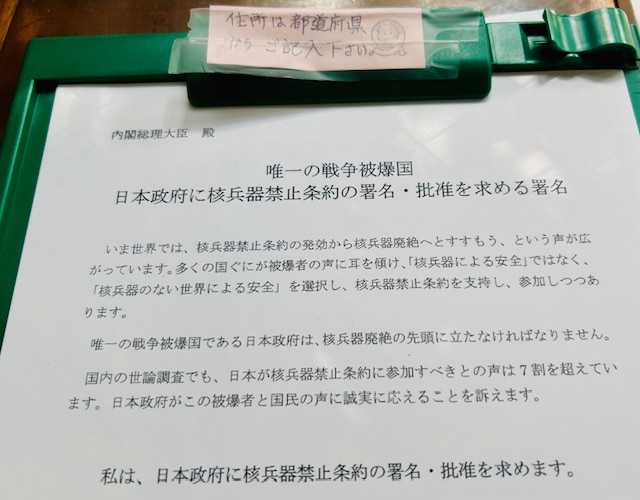 住所は都道府県
からご記入下さい。
内閣総理大臣 殿
唯一の戦争被爆国
日本政府に核兵器禁止条約の署名・批准を求める署名
いま世界では、核兵器禁止条約の発効から核兵器廃絶へとすすもう、という声が広
がっています。多くの国ぐにが被爆者の声に耳を傾け、「核兵器による安全」ではなく、
「核兵器のない世界による安全」を選択し、核兵器禁止条約を支持し、参加しつつあ
ります。
唯一の戦争被爆国である日本政府は、核兵器廃絶の先頭に立たなければなりません。
国内の世論調査でも、日本が核兵器禁止条約に参加すべきとの声は7割を超えてい
ます。日本政府がこの被爆者と国民の声に誠実に応えることを訴えます。
私は、日本政府に核兵器禁止条約の署名・批准を求めます。